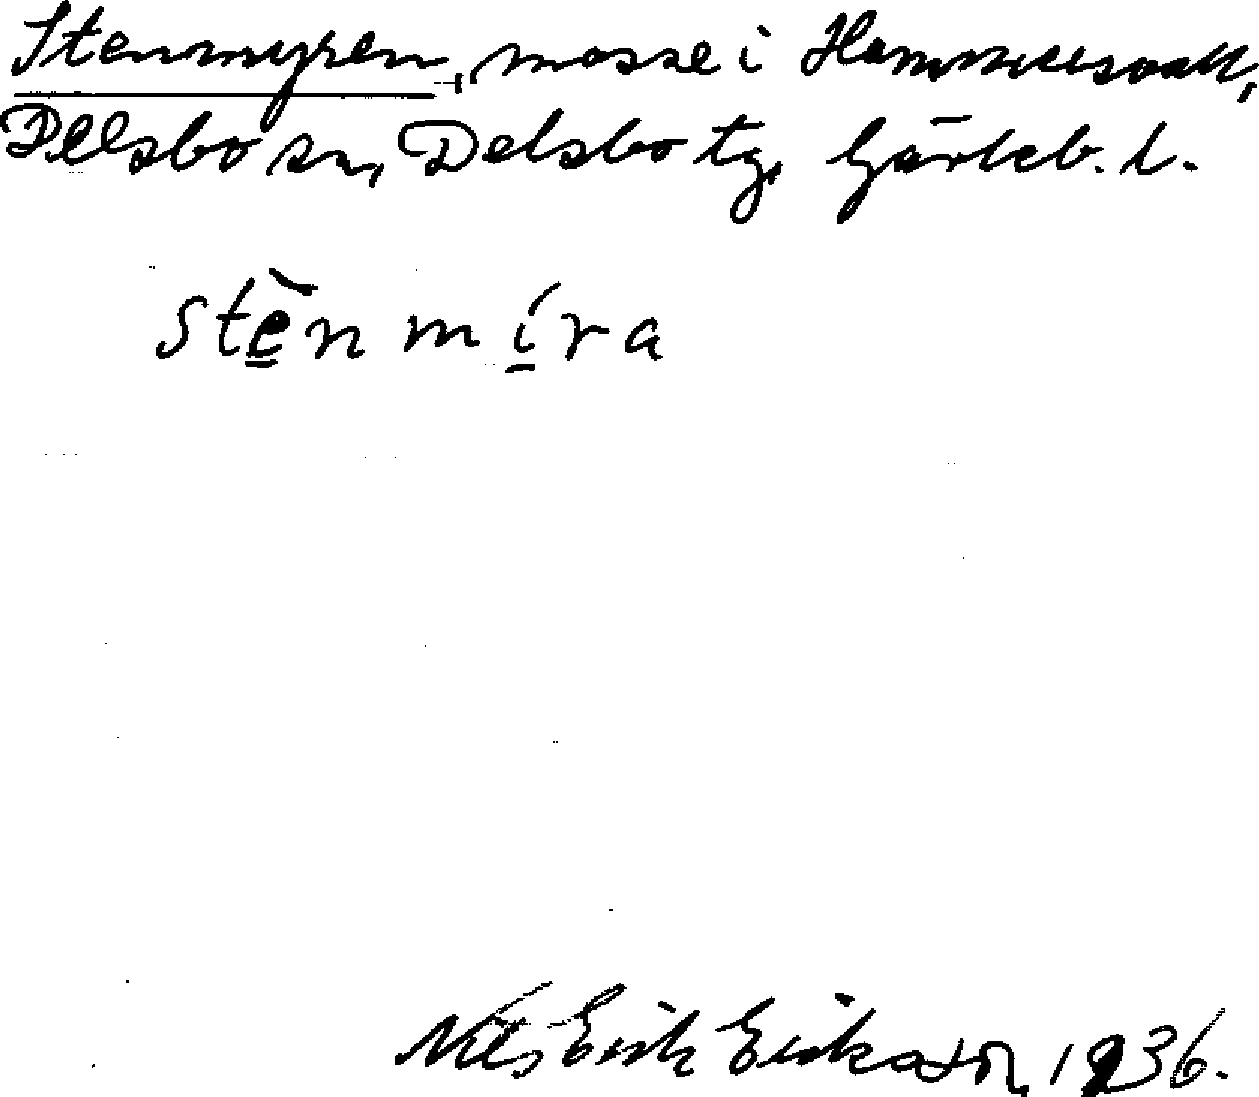 Stenmyren, mosse i Hammarsvall,
Delsbo sn, Delsbo tg, Gävleb. l.
stèn míra
Nils Erik Eriksson, 1936.